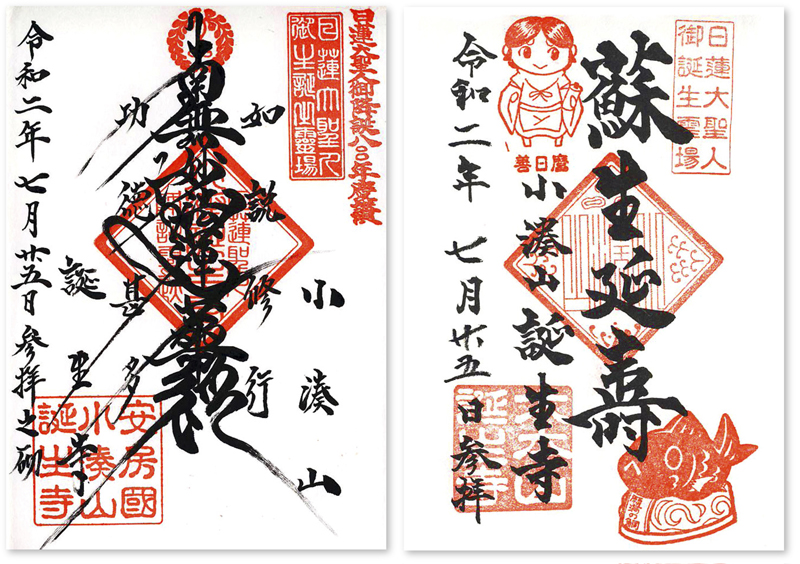 日蓮大聖人
御誕生靈場
小湊山
如説修行
南無妙法蓮華経
功徳甚多
誕生寺
令和二年七月廿五日参拝之砌
安房國
小湊山
誕生寺
日蓮大聖人
御誕生靈場
蘇生延壽
善日麿
小湊山誕生寺
令和二年七月廿五日参拝